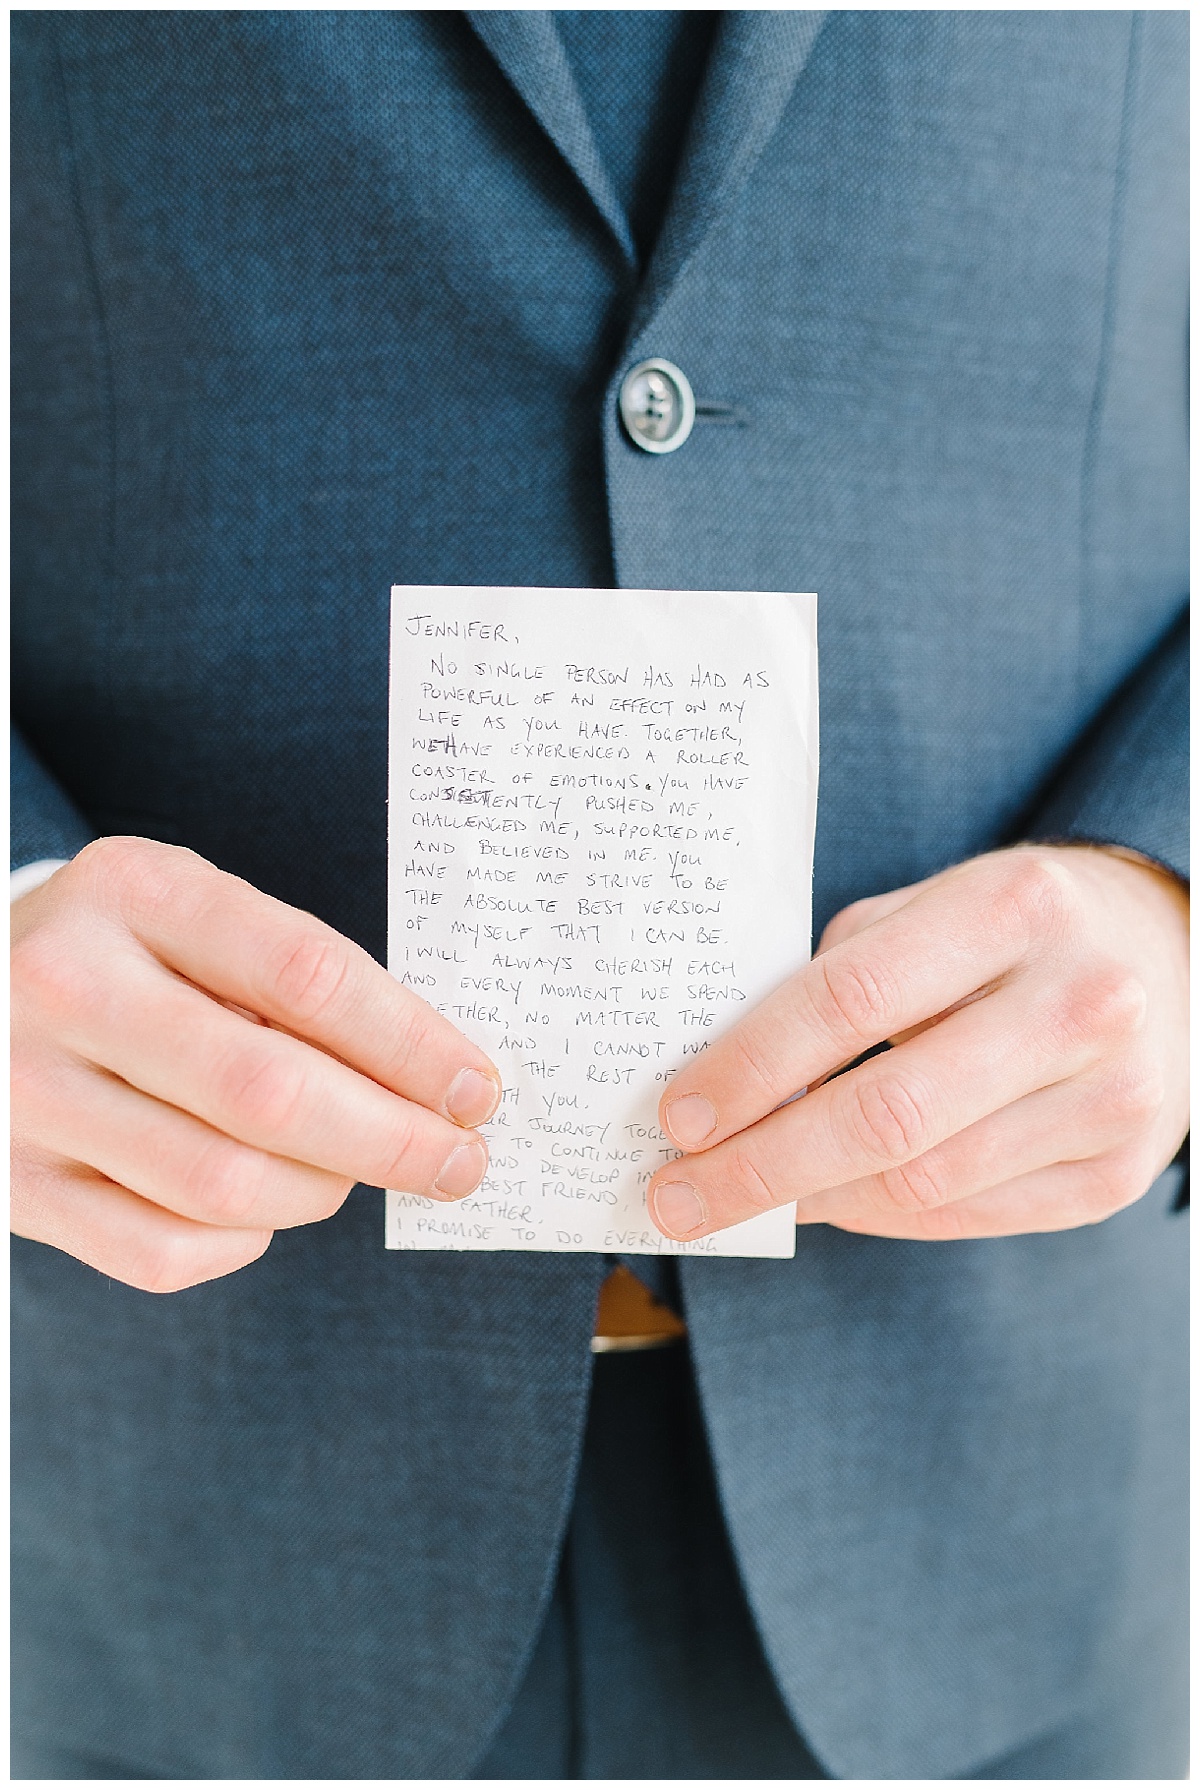 JENNIFER,
NO SINGLE PERSON HAS HAD AS
POWERFUL OF AN EFFECT ON MY
LIFE AS YOU HAVE. TOGETHER,
WE HAVE EXPERIENCED A ROLLER
COASTER OF EMOTIONS. YOU HAVE
CONSISTENTLY PUSHED ME,
CHALLENGED ME, SUPPORTED ME,
AND BELIEVED IN ME. YOU
HAVE MADE ME STRIVE TO BE
THE ABSOLUTE BEST VERSION
OF MYSELF THAT I CAN BE.
I WILL ALWAYS CHERISH EACH
AND EVERY MOMENT WE SPEND
ETHER, NO MATTER THE
AND I CANNOT WA
THE REST OF
TH YOU.
UR JOURNEY TOGE
TO CONTINUE TO
AND DEVELOP IN
BEST FRIEND,
AND FATHER.
I PROMISE TO DO EVERYTHING